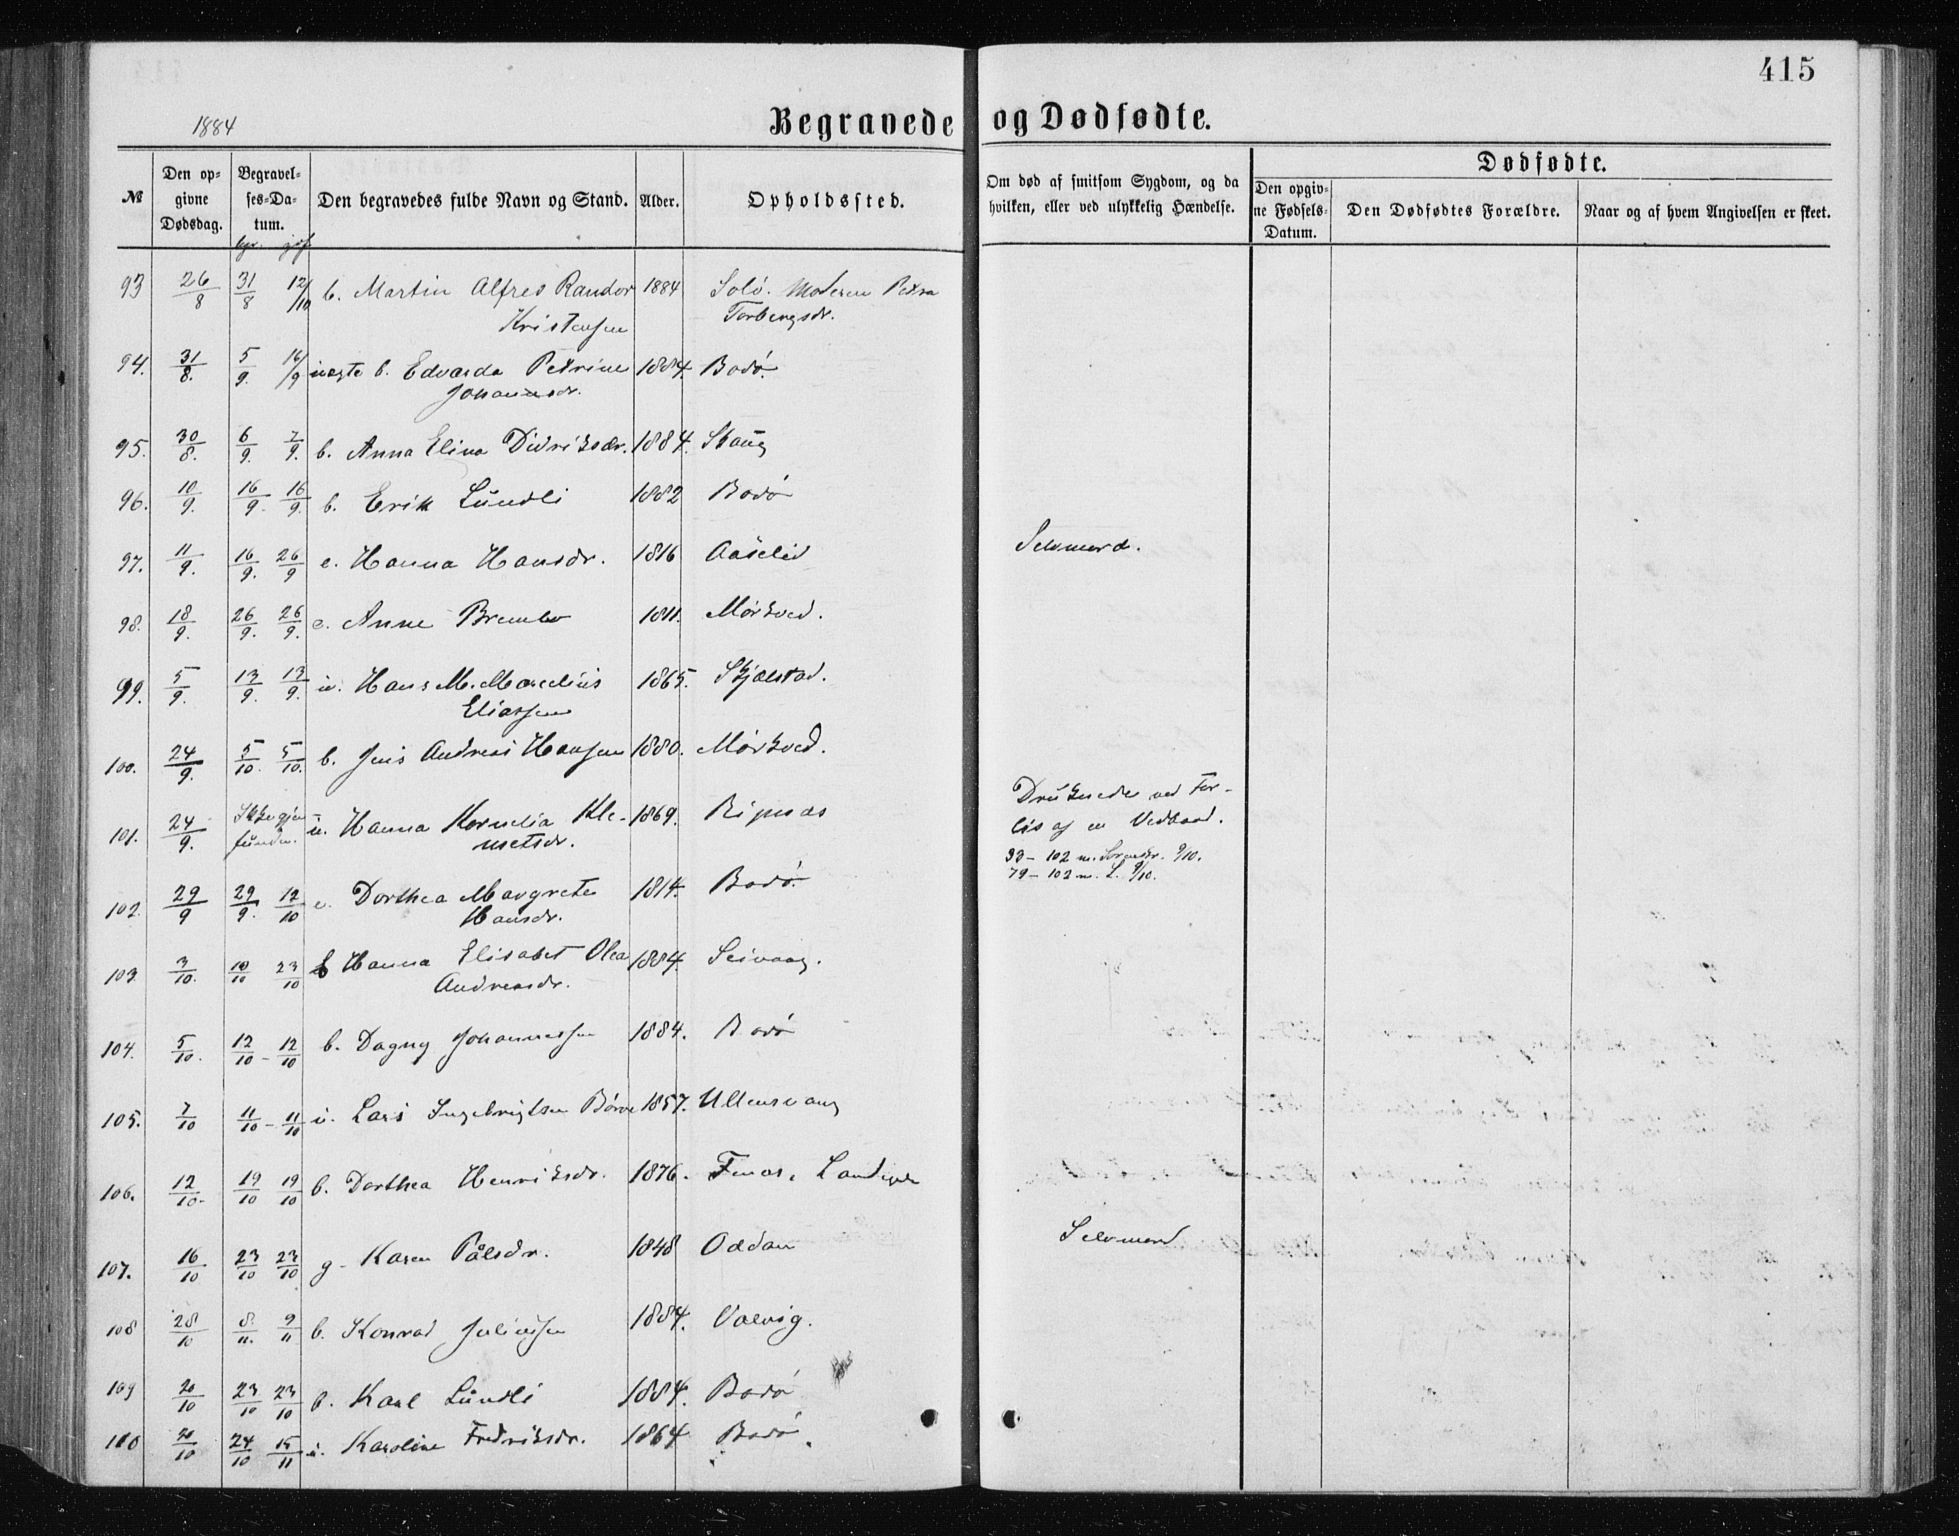 415
1884
Begravede og Dødfødte.
№
Den opgivne Dødsdag.
Begravelses-Datum.
Den begravedes fulde Navn og Stand.
Alder.
Opholdssted.
Om død af smitsom Sygdom, og da hvilken, eller ved ulykkelig Hændelse.
Dødfødte.
Den opgivne Fødsels-Datum.
Den Dødfødtes Forældre.
Naar og af hvem Angivelsen er skeet.
93 26/8 31/8 12/10 b. Martin Alfred Randor 1884 Solø. Moderen Petra
Kristensen Torbergsdr.
94. 31/8. 5/9. 16/9 uægte b. Edvarda Petrine 1884. Bodø.
Johannsdr.
95. 30/8. 6/9. 7/9. b. Anna Elina Didriksdr. 1884. Skaug
96. 10/9. 16/9. 16/9. b. Erik Lundli 1882 Bodø
97. 11/9. 16/9. 26/9 e. Hanna Hansdr. 1816 Aaselid Selvmord.
98. 18/9. 26/9. 26/9. e. Anne Brembo 1811. Mørkved.
99. 5/9. 13/9. 13/9. u. Hans M. Marelius 1865. Skjælstad.
Eliassen
100. 24/9. 5/10. 5/10. b. Jens Andreas Hansen 1880. Mørkved.
101. 24/9. Ikke gjen- u. Hanna Kornelia Kle- 1869. Ripnas Druknede ved For-
funden. metsdr. lis af en Vedbaad.
93 - 102 m. Sorenskr. 9/10.
79 - 102 m. L. 9/10.
102. 29/9 29/9. 12/10 e. Dorthea Margrete 1814. Bodø.
Hansdr.
103. 3/10. 10/10 23/10 b Hanna Elisabet Olea 1884. Seivaag.
Andreasdr.
104. 5/10. 12/10 - 12/10 b. Dagny Johannessen 1884. Bodø
105. 7/10 11/10 - 11/10 u. Lars Ingebrigtsen Børve 1857. Ullensvang
106. 12/10. 19/10 19/10 b. Dorthea Henriksdr. 1876. Fenes, Landego
107. 16/10 23/10 23/10 g. Karen Pålsdr. 1848 Oddan Selvmord
108 28/10 8/11. 9/11 b. Konrad Juliussen 1884. Valvig.
109 20/10 23/10 23/10 b. Karl Lundli 1884. Bodø
110 20/10 24/10 15/11 u. Karoline Fredriksdr. 1864 Bodø.